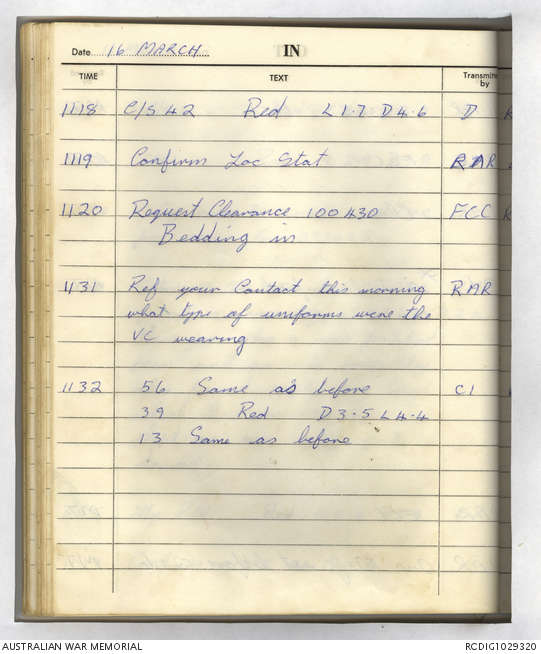 Date 16 MARCH IN
TIME TEXT Transmitted by
1118 C/S 42 Red L 1.7 D 4.6 D
1119 Confirm Loc Stat RAR
1120 Request Clearance 100430 FCC
Bedding in
1131 Ref your Contact this morning RAR
what type of uniforms were the
VC wearing
1132 56 Same as before C1
39 Red D 3.5 L 4.4
13 Same as before
AUSTRALIAN WAR MEMORIAL RCDIG1029320